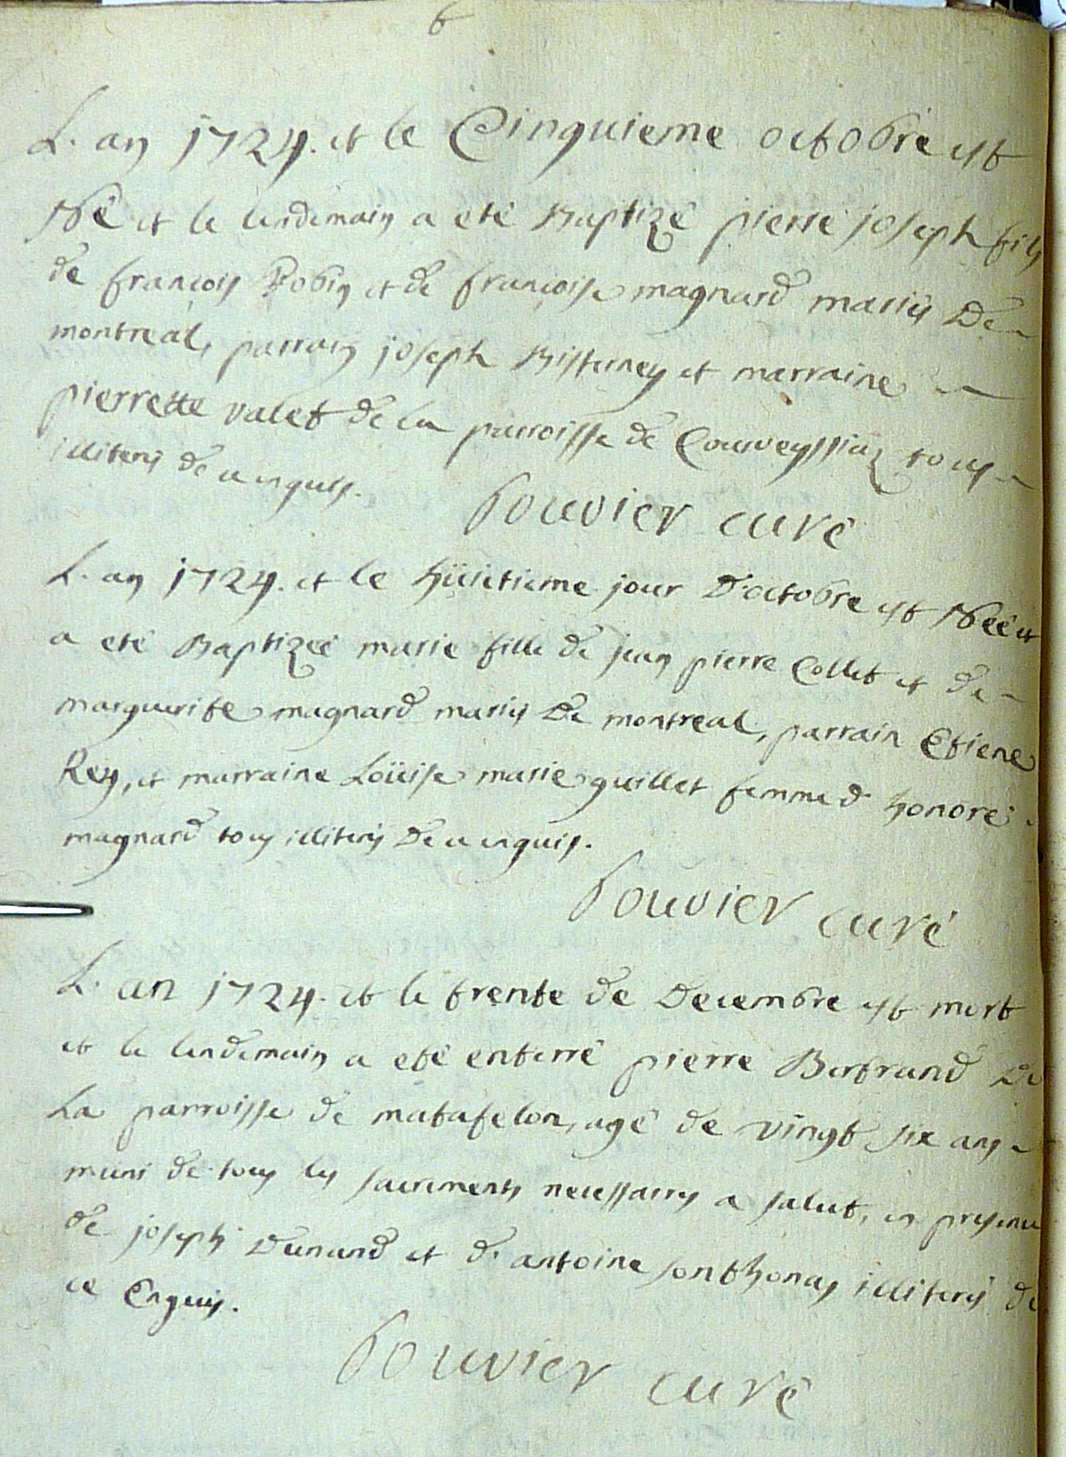 6
L'an 1724. et le Cinquieme octobre est
Né et le lendemain a eté Baptizé pierre joseph fils
de françois Robin et de françoise magnard mariés De
montreal, parrain joseph et marraine
pierrette valet de la parroisse de Courveyssiaz tous
illiterés de ce enquis.
Bouvier curé
L'an 1724. et le hüictieme jour D'octobre est Néé et
a eté Baptizéé marie fille de jean pierre Collet et de
marguerite magnard mariés De montreal, parrain Etiene
Rey, et marraine Loüise marie guillet femme d honoré
magnard tous illiterés De ce enquis.
Bouvier curé
L'an 1724. et le trente de Decembre est mort
et le lendemain a eté enterré pierre Bertrand De
La parroisse de matafelon, agé de vingt six ans
muni de tous les sacrements necessaires a salut, en presence
de joseph Dunand et d' antoine sonthonas illiterés de
ce Enquis.
Bouvier curé